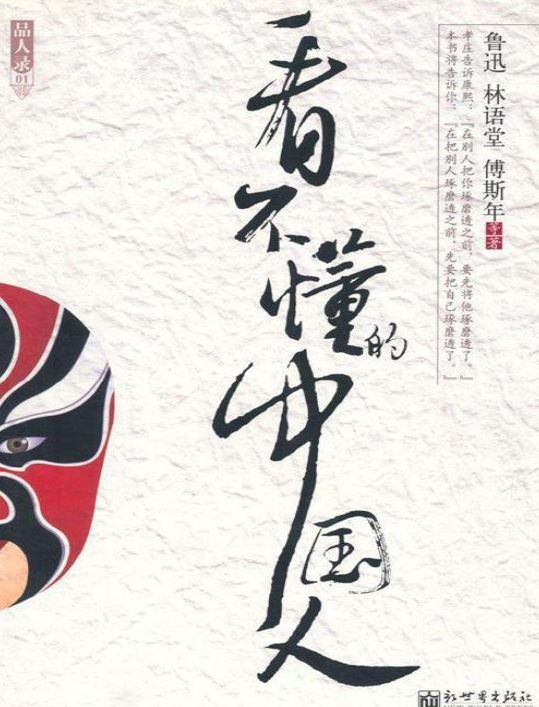 品人录
01
看不懂的中国人
鲁迅 林语堂 傅斯年 等著
孝庄告诉康熙:『在别人把你琢磨透之前,要先将他琢磨透了。』
本书将告诉你:『在把别人琢磨透之前,先要把自己琢磨透了。』
新世界出版社